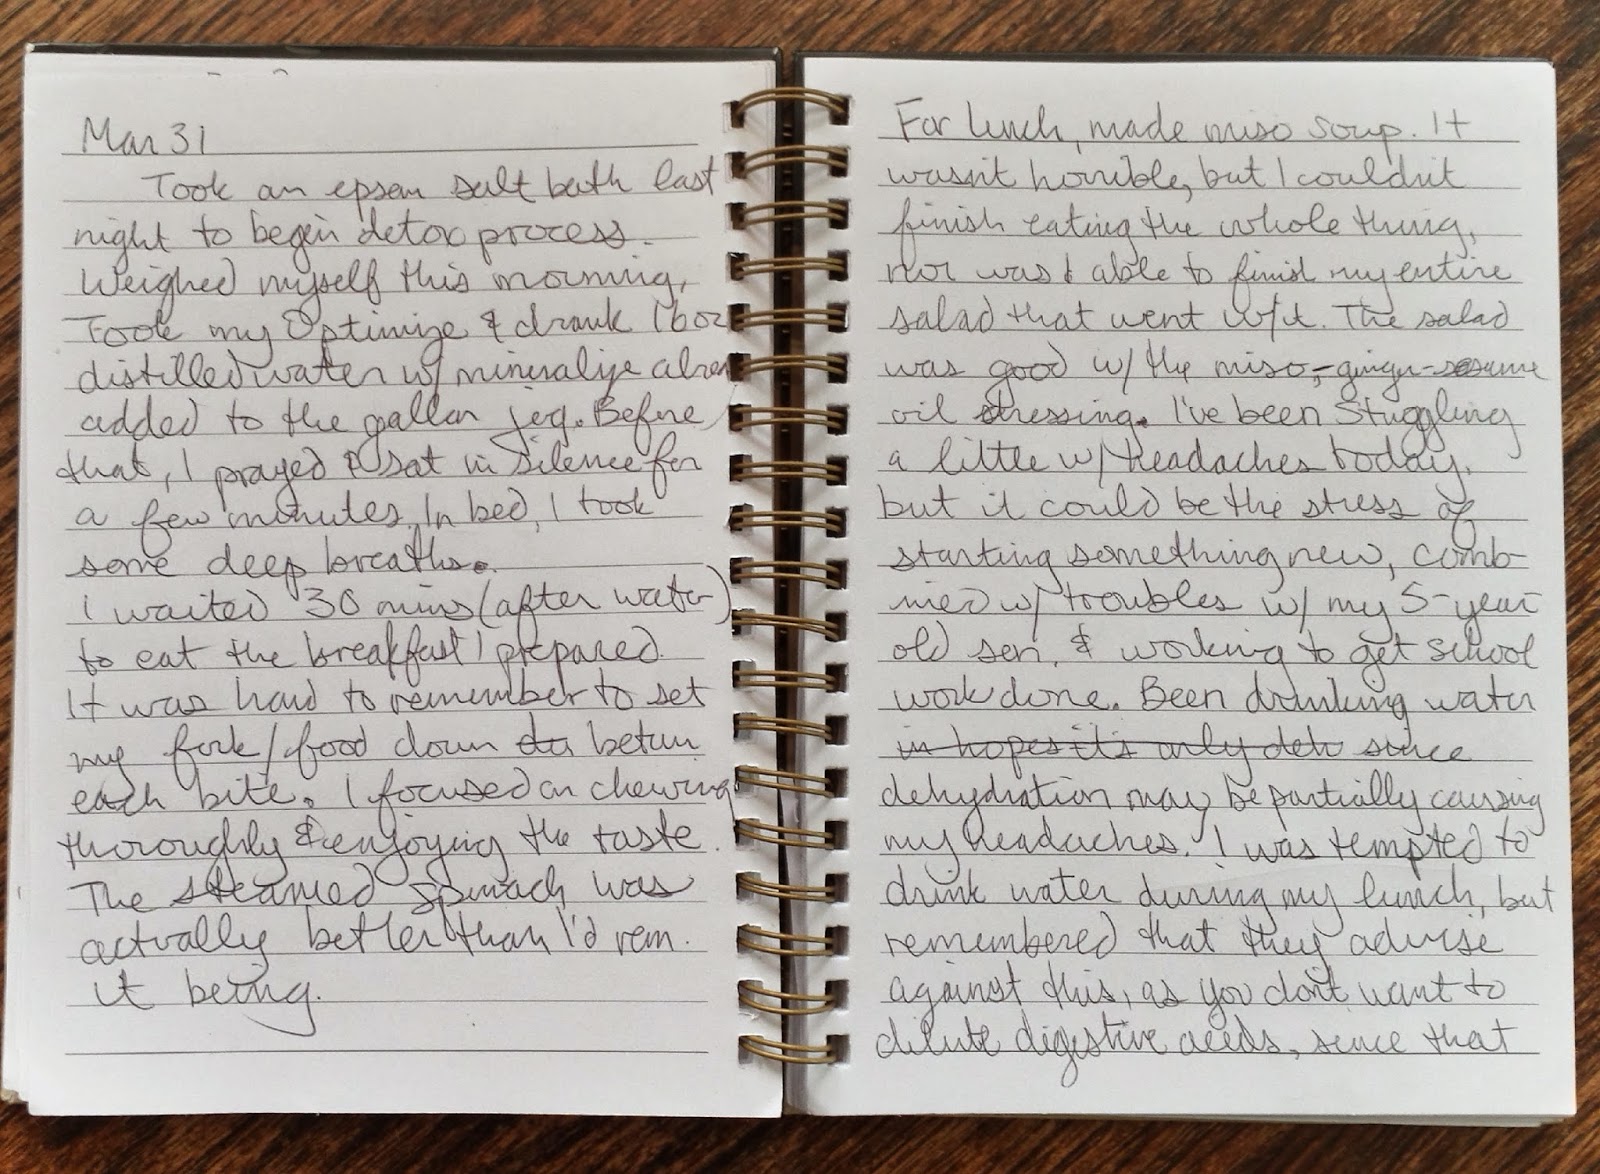 Mar 31
Took an epsom salt bath last
night to begin detox process.
Weighed myself this morning,
Took my Optimize & drank 16oz
distilled water w/ mineralize alrea
added to the gallon jug. Before
that, I prayed & sat in silence for
a few minutes. In bed, I took
some deep breaths.
I waited 30 mins (after water)
to eat the breakfast I prepared.
It was hard to remember to set
my fork/food down between
each bite. I focused on chewing
thoroughly & enjoying the taste.
The steamed spinach was
actually better than I'd rem.
it being.
For lunch, made miso soup. It
wasn't horrible, but I couldn't
finish eating the whole thing,
nor was I able to finish my entire
salad that went w/it. The salad
was good w/ the miso-ginger-sesame
oil dressing. I've been Stuggling
a little w/ headaches today,
but it could be the stress of
starting something new, comb-
ined w/ troubles w/ my 5-year
old son, & working to get school
work done. Been drinking water
in hopes it's only deh since
dehydration may be partially causing
my headaches. I was tempted to
drink water during my lunch, but
remembered that they advise
against this, as you don't want to
dilute digestive acids, since that